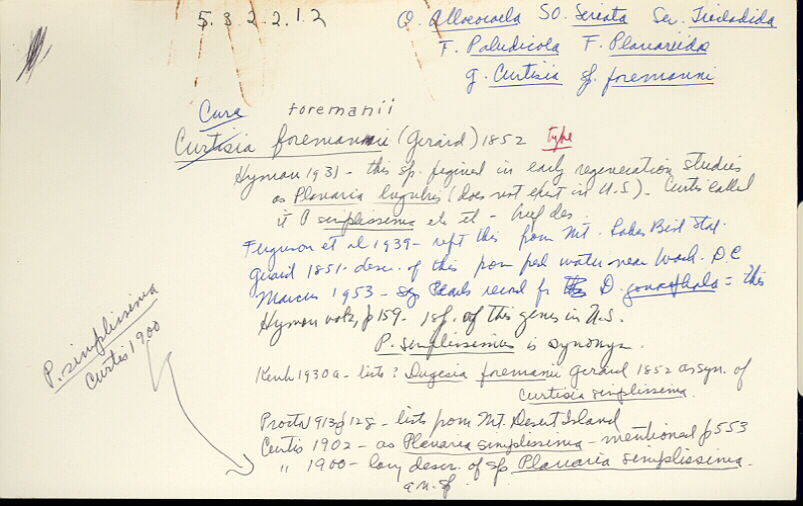 5.3.2.2.1.2
O. Alloeocoela SO. Seriata Ser. Tricladida
F. Paludicola F. Planariidae
g. Curtisia sp. foremanni
Cura foremanii
Curtisia foremannii (Girard) 1852 type
Hyman 1931 - this sp. figured in early regeneration studies
as Planaria lugubris (does not exist in U.S.). Curtis called
it P simplissima et al - brief des.
Ferguson et al 1939 - rept this from Mt. Lakes Biol Sta.
Girard 1851 - desc. of this from fresh water near Wash. DC
Marcus 1953 - says record D. gonocephala = this
Hyman vol 2, p 159. 1 sp. of this genus in U.S.
P. simplissima is synonym.
Kenk 1930a - lists ? Dugesia foremanii Girard 1852 as syn. of
Curtisia simplissima.
Procter 1913 p 128 - lists from Mt. Desert Island
Curtis 1902 - as Planaria simplissima - mentioned p 553
" 1900 - long descr. of sp Planaria simplissima.
a n. sp.
P. simplissima
Curtis 1900